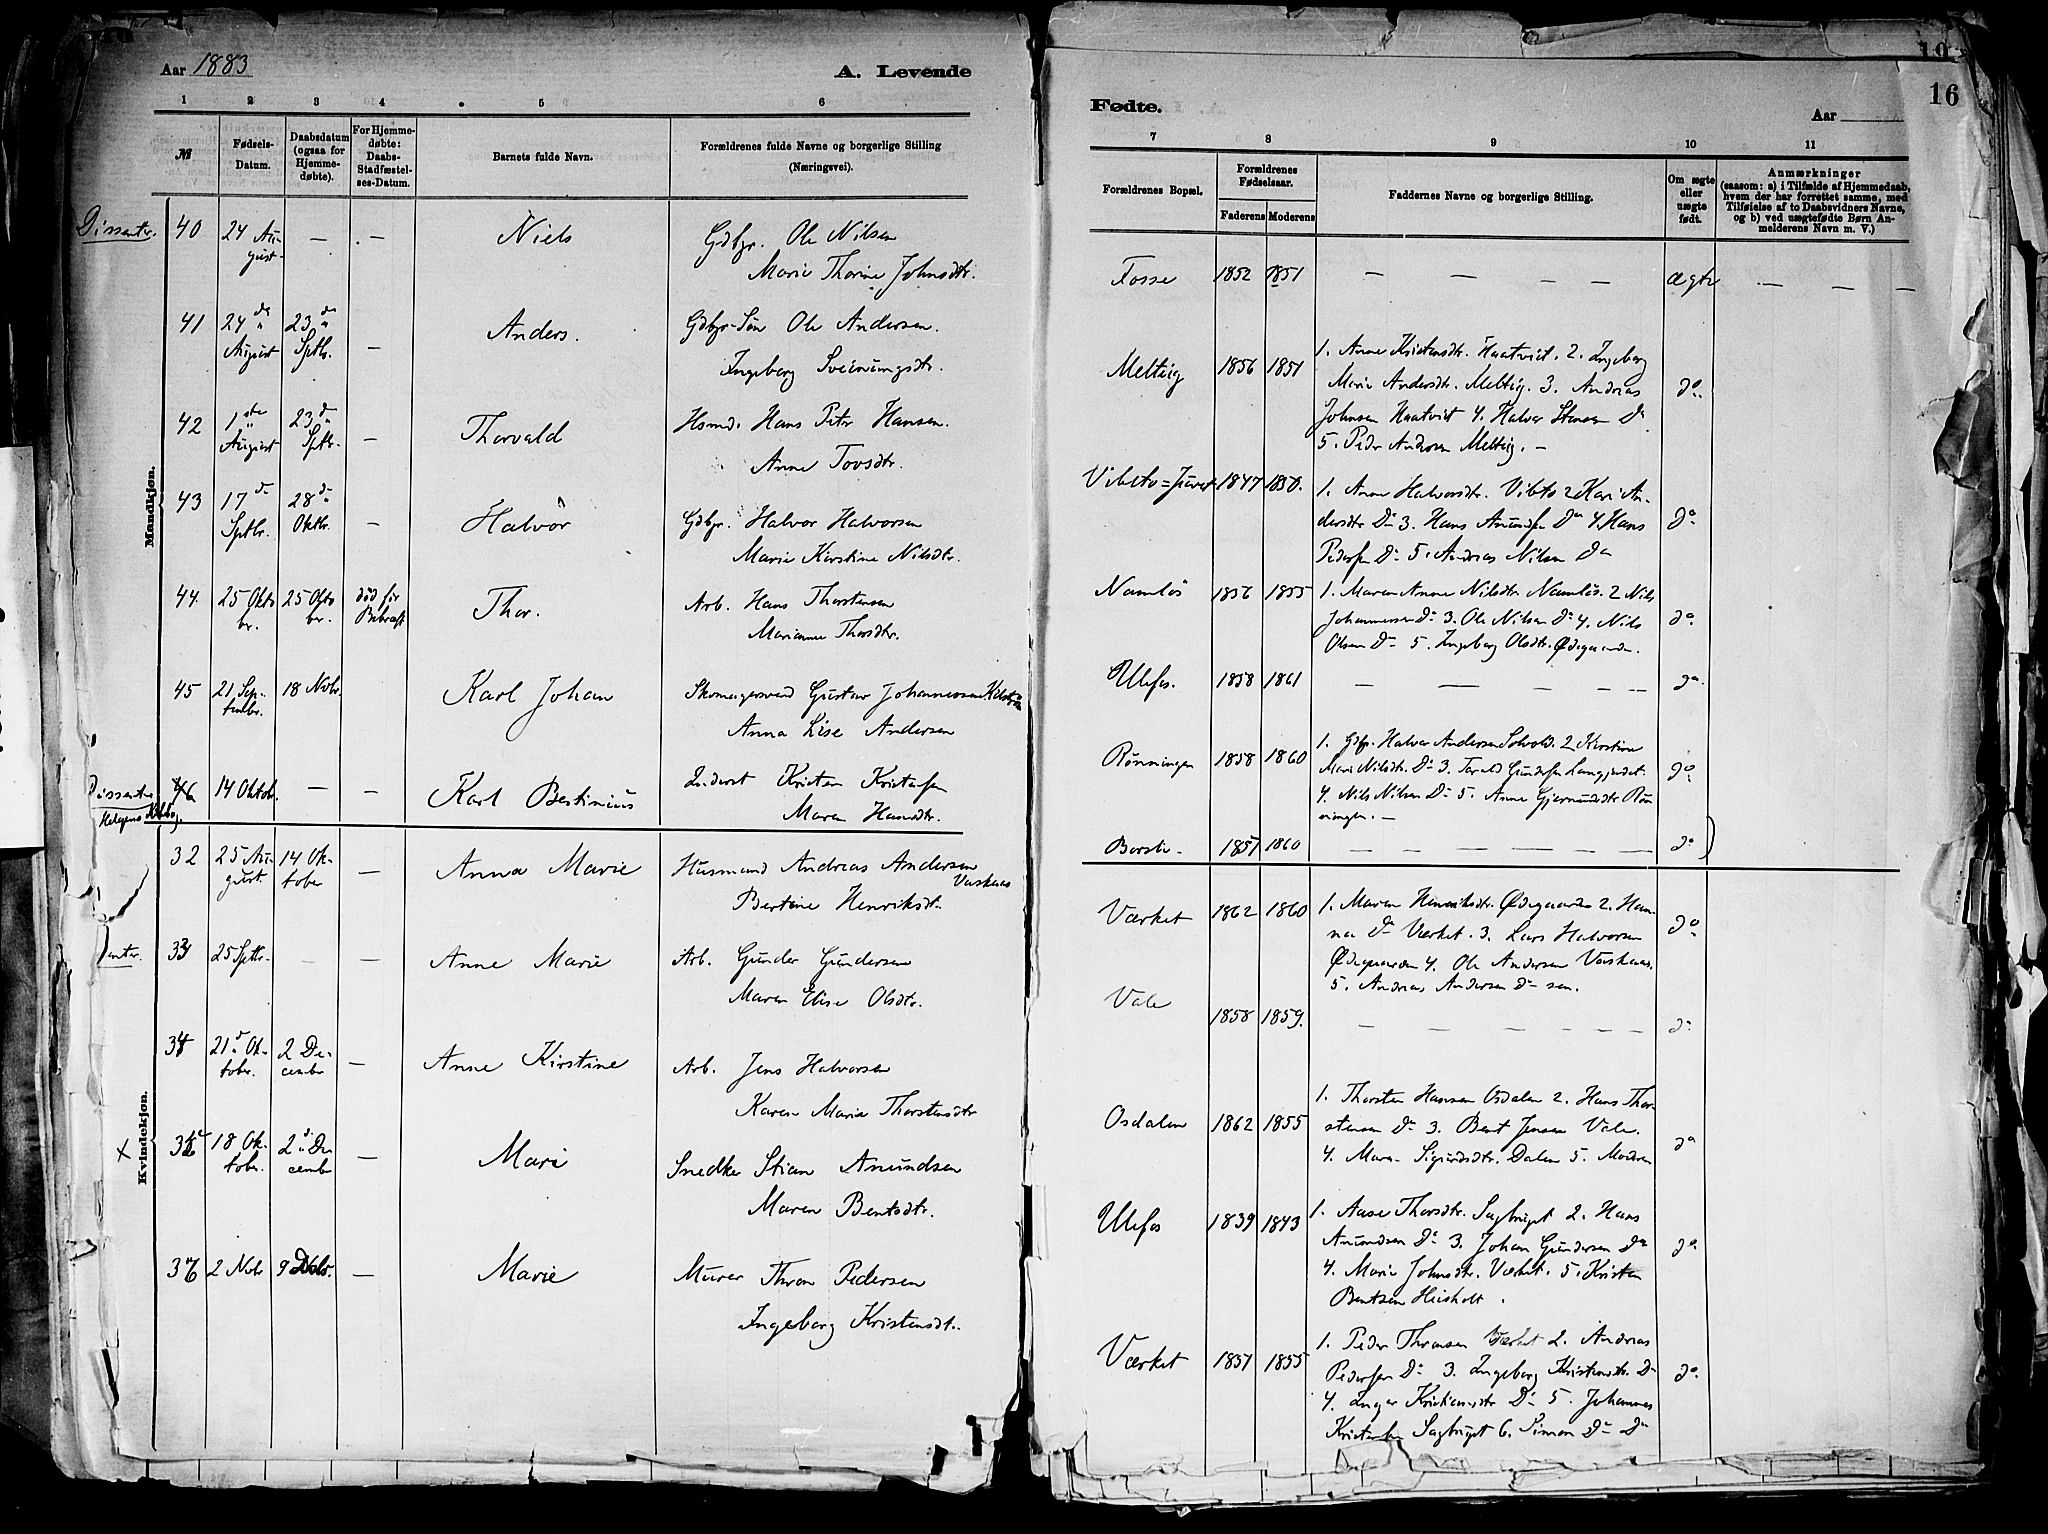 Aar 1883
A. Levende
1 2 3 4 5 6
№
Fødsels-Datum.
Daabsdatum (ogsaa for Hjemme-døbte).
For Hjemme-døbte: Daabs-Stadfæstel-ses-Datum.
Barnets fulde Navn.
Forældrenes fulde Navne og borgerlige Stilling (Næringsvei).
Mandkjøn.
Dissentr. 40 24 Au- — — Niels Gdbgr. Ole Nilsen
gust Marie Thorine Johnsdtr.
41 24 de 23 d Anders. Gdbgr-Søn Ole Andersen.
August Sptbr. — Ingeborg Sveinungsdtr.
42 1 ste 23 d Thorvald Hsmd. Hans Peter Hansen.
August Sptbr. — Anne Tovsdtr.
43 17 d 28 d Halvor Gdbgr. Halvor Halvorsen
Sptbr. Oktbr. — Marie Kirstine Nilsdtr.
44 25 Okto 25 Okto død før Thor. Arb. Hans Thorstensen
ber. ber. Bekræft Marianne Thorsdtr.
45 21 Sep- 18 Nvbr. Karl Johan Skomagersvend Gustav Johannessen
tember. Anna Lise Andersen
Dissenter 46 14 Oktob. — — Karl Bestinius Inderst Kristen Kristensen
Maren Hansdtr.
Kvindekjøn.
32 25 Au- 14 Ok- Anna Marie Husmand Andreas Andersen
gust. tober — Vaskaas
Bertine Henriksdt.
33 25 Sptbr. — — Anne Marie Arb. Gunder Gundersen
Maren Elise Olsdtr.
34 21 d Ok- 2 De- Anne Kirstine Arb. Jens Halvorsen
tober. cember — Karen Marie Thorstensdtr
x 35 18 Ok- 2 d De Mari Snedker Stian Amundsen
tober. cember — Maren Bentsdtr.
36 2 Nvbr 9 — Marie Murer Thron Pedersen
Ingeborg Kristensdt.
16
Fødte.
Aar
7 8 9 10 11
Forældrenes Bopæl.
Forældrenes Fødselsaar.
Faderens Moderens
Faddernes Navne og borgerlige Stilling.
Om ægte eller uægte født.
Anmærkninger
(saasom: a) i Tilfælde af Hjemmedaab, hvem der har forrettet samme, med Tilføielse af to Daabsvidners Navne, og b) ved uægtefødte Børn An-melderens Navn m. V.)
Fosse 1852 1851 — — — — ægte — — —
Melteig 1856 1851 1. Anne Kristensdtr. Haatveit. 2. Ingeborg
Marie Andersdtr. Melteig. 3. Andreas do.
Johnsen Haatveit 4. Halvor Stensen Do
5. Peder Andersen Melteig. —
Vibeto=Juvet 1847 1850. 1. Anne Halvorsdtr. Vibto 2 Kari An-
dersdtr Do 3. Hans Amundsen Do 4. Hans do
Pedersen Do 5. Andreas Nilsen Do
Namløs 1856 1855 1. Maren Anne Nilsdtr Namløs. 2 Nils
Johannessen Do 3. Ole Nilsen Do 4. Nils do.
Olsen Do 5. Ingeborg Olsdtr. Ødegaarden.
Ulefos. 1858 1861 — — — — — do.
Rønningen 1858 1860 1. Gdbr. Halvor Andersen 2 Kirstine
Marie Nilsdtr. Do 3. Tarald Gundersen do
4. Nils Nilsen Do 5. Anne Gjermundsdtr Røn
ningen. —
Borsti- 1857 1860 — — — — — — do
Værket 1862 1860 1. Maren Henriksdtr. Ødegaarden 2. Han-
na Do Værket. 3. Lars Halvorsen do
Ødegaarden 4. Ole Andersen Vaskaas.
5. Andreas Andersen Do sen.
Vale 1858 1859. — — — — — do
Osdalen 1862 1855 1. Thorsten Hansen Osdalen 2. Hans Thor-
stensen Do 3. Bent Jensen Vale. do
4. Maren Sigurdsdtr. Dalen 5. Moderen
Ulefos 1839 1843 1. Aase Thorsdtr. Sagbruget 2. Hans
Amundsen Do 3. Johan Gundersen Do do
4. Marie Johnsdtr. Værket. 5. Kristen
Bentsen Heisholt.
Værket 1857 1855 1. Peder Thronsen Værket 2. Andreas
Pedersen Do 3. Ingeborg Kristensdtr. Do do.
4. Inger Kristiansdtr Do 5. Johannes
Kristensen Sagbruget 6. Simon Do Do